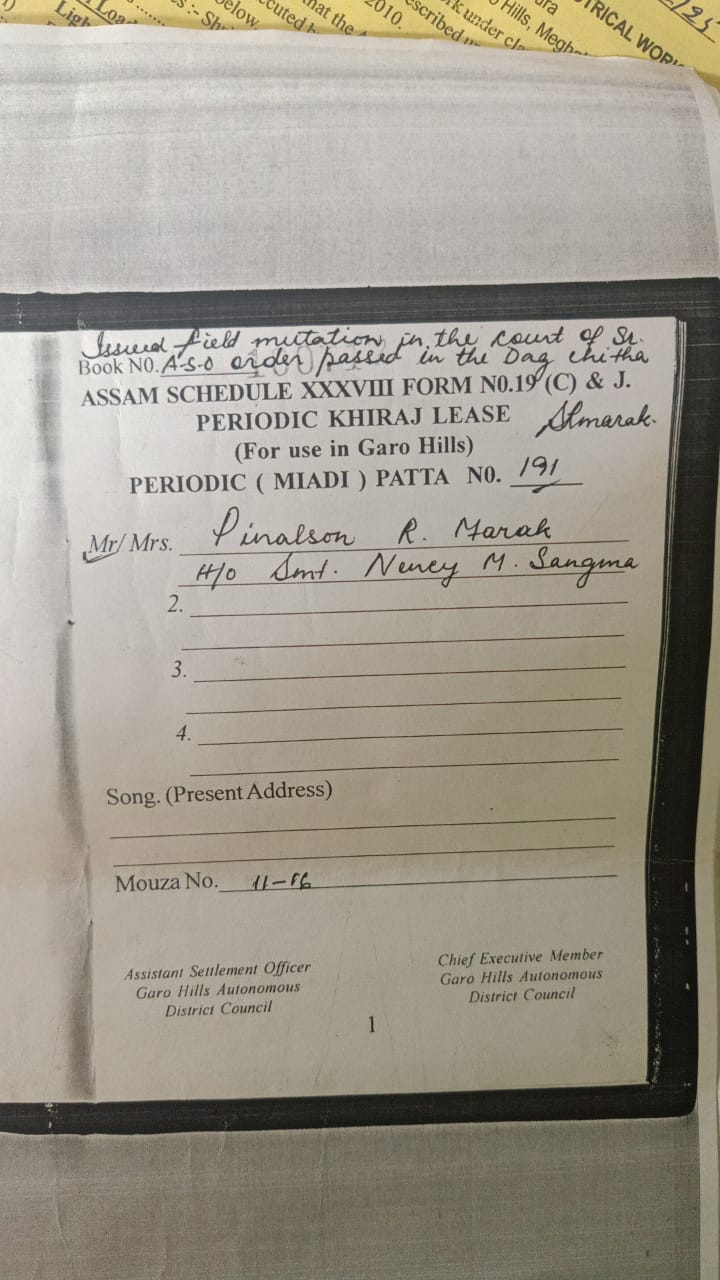 TRICAL WORK
/25
ura
Hills, Megha
rk under cla
escribed u
2010.
that the
ecuted
below.
es :- Sh
Load
Ligh
Issued field mutation in the court of Sr.
Book N0. A.S.O order passed in the Dag chitha
ASSAM SCHEDULE XXXVIII FORM N0.19 (C) & J.
PERIODIC KHIRAJ LEASE
(For use in Garo Hills)
PERIODIC ( MIADI ) PATTA N0. 191
Mr/ Mrs. Pinalson R. Marak
H/o Smt. Nency M. Sangma
2.
3.
4.
Song. (Present Address)
Mouza No. 11-
Assistant Settlement Officer
Garo Hills Autonomous
District Council
Chief Executive Member
Garo Hills Autonomous
District Council
1